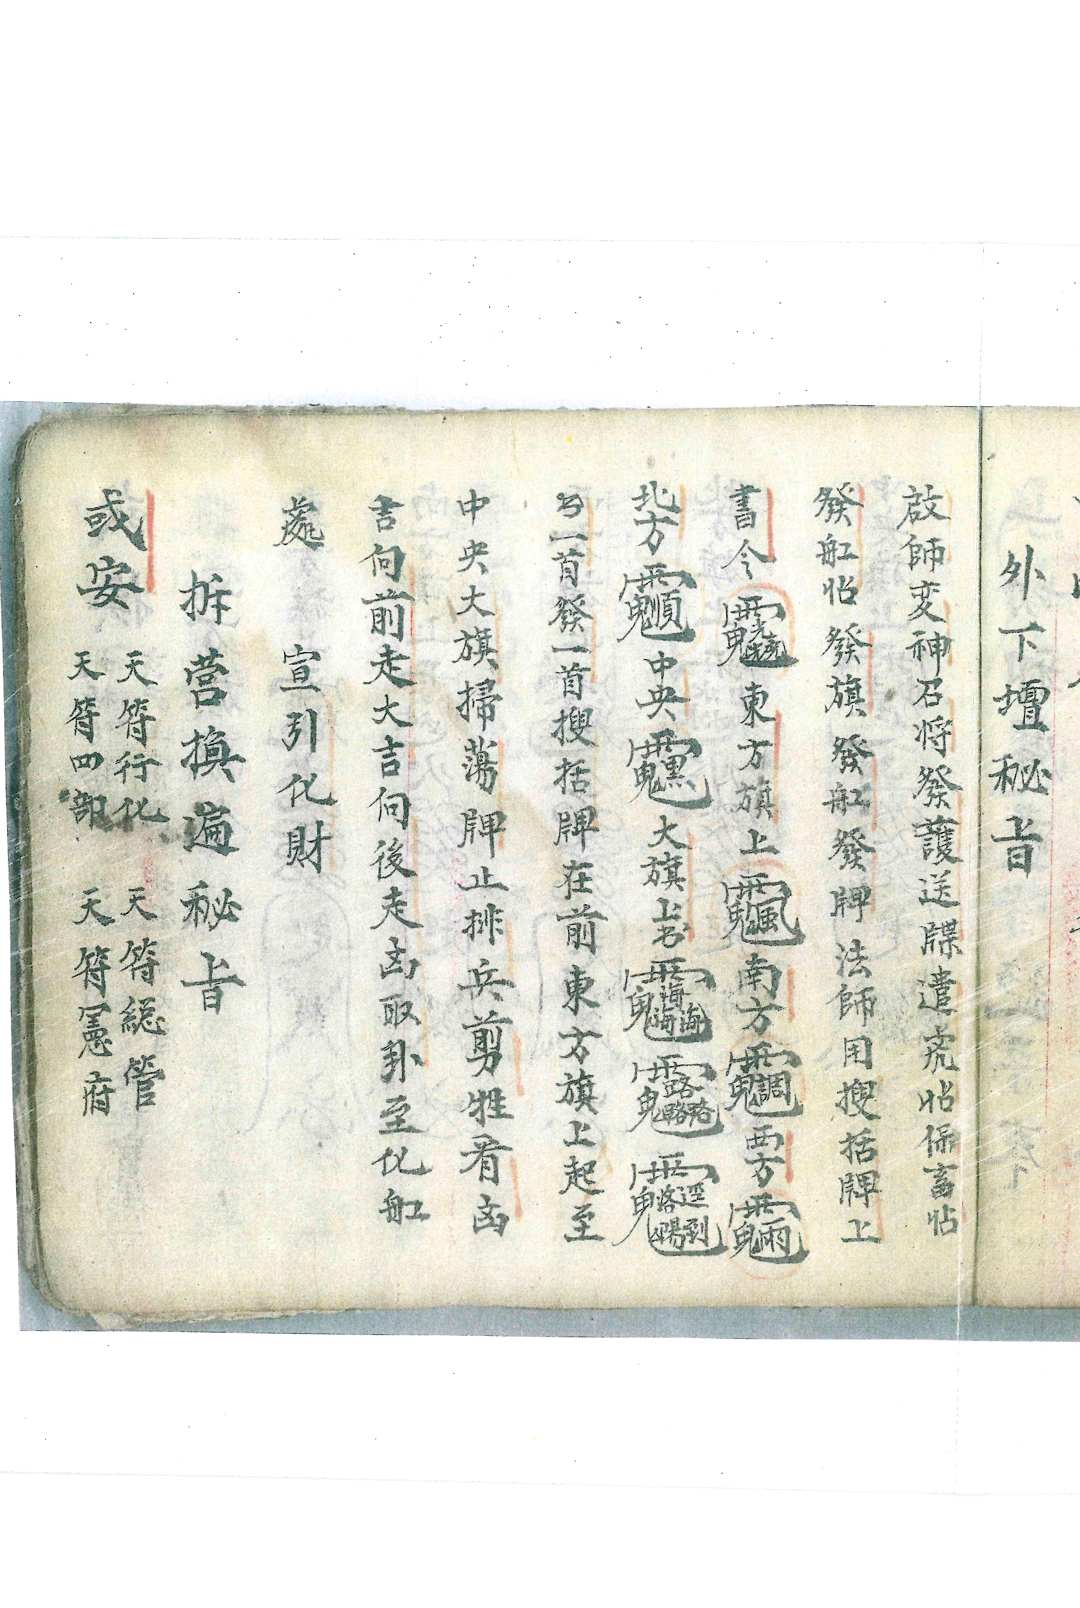 外下壇秘旨
啟師变神召将發護送牒遣究怗保畜帖
發舡怗發旗發舡發牌法師用搜括牌上
書令東方旗上南方西方
北方中央大旗上书
一首發一首搜括牌在前東方旗上起至
中央大旗掃蕩牌止排兵剪牲看凶
吉向前走大吉向後走凶取卦至化舡
處 宣引化財
拆营換遍秘旨
或安 天符行化 天符総管
天符四部 天符憲府